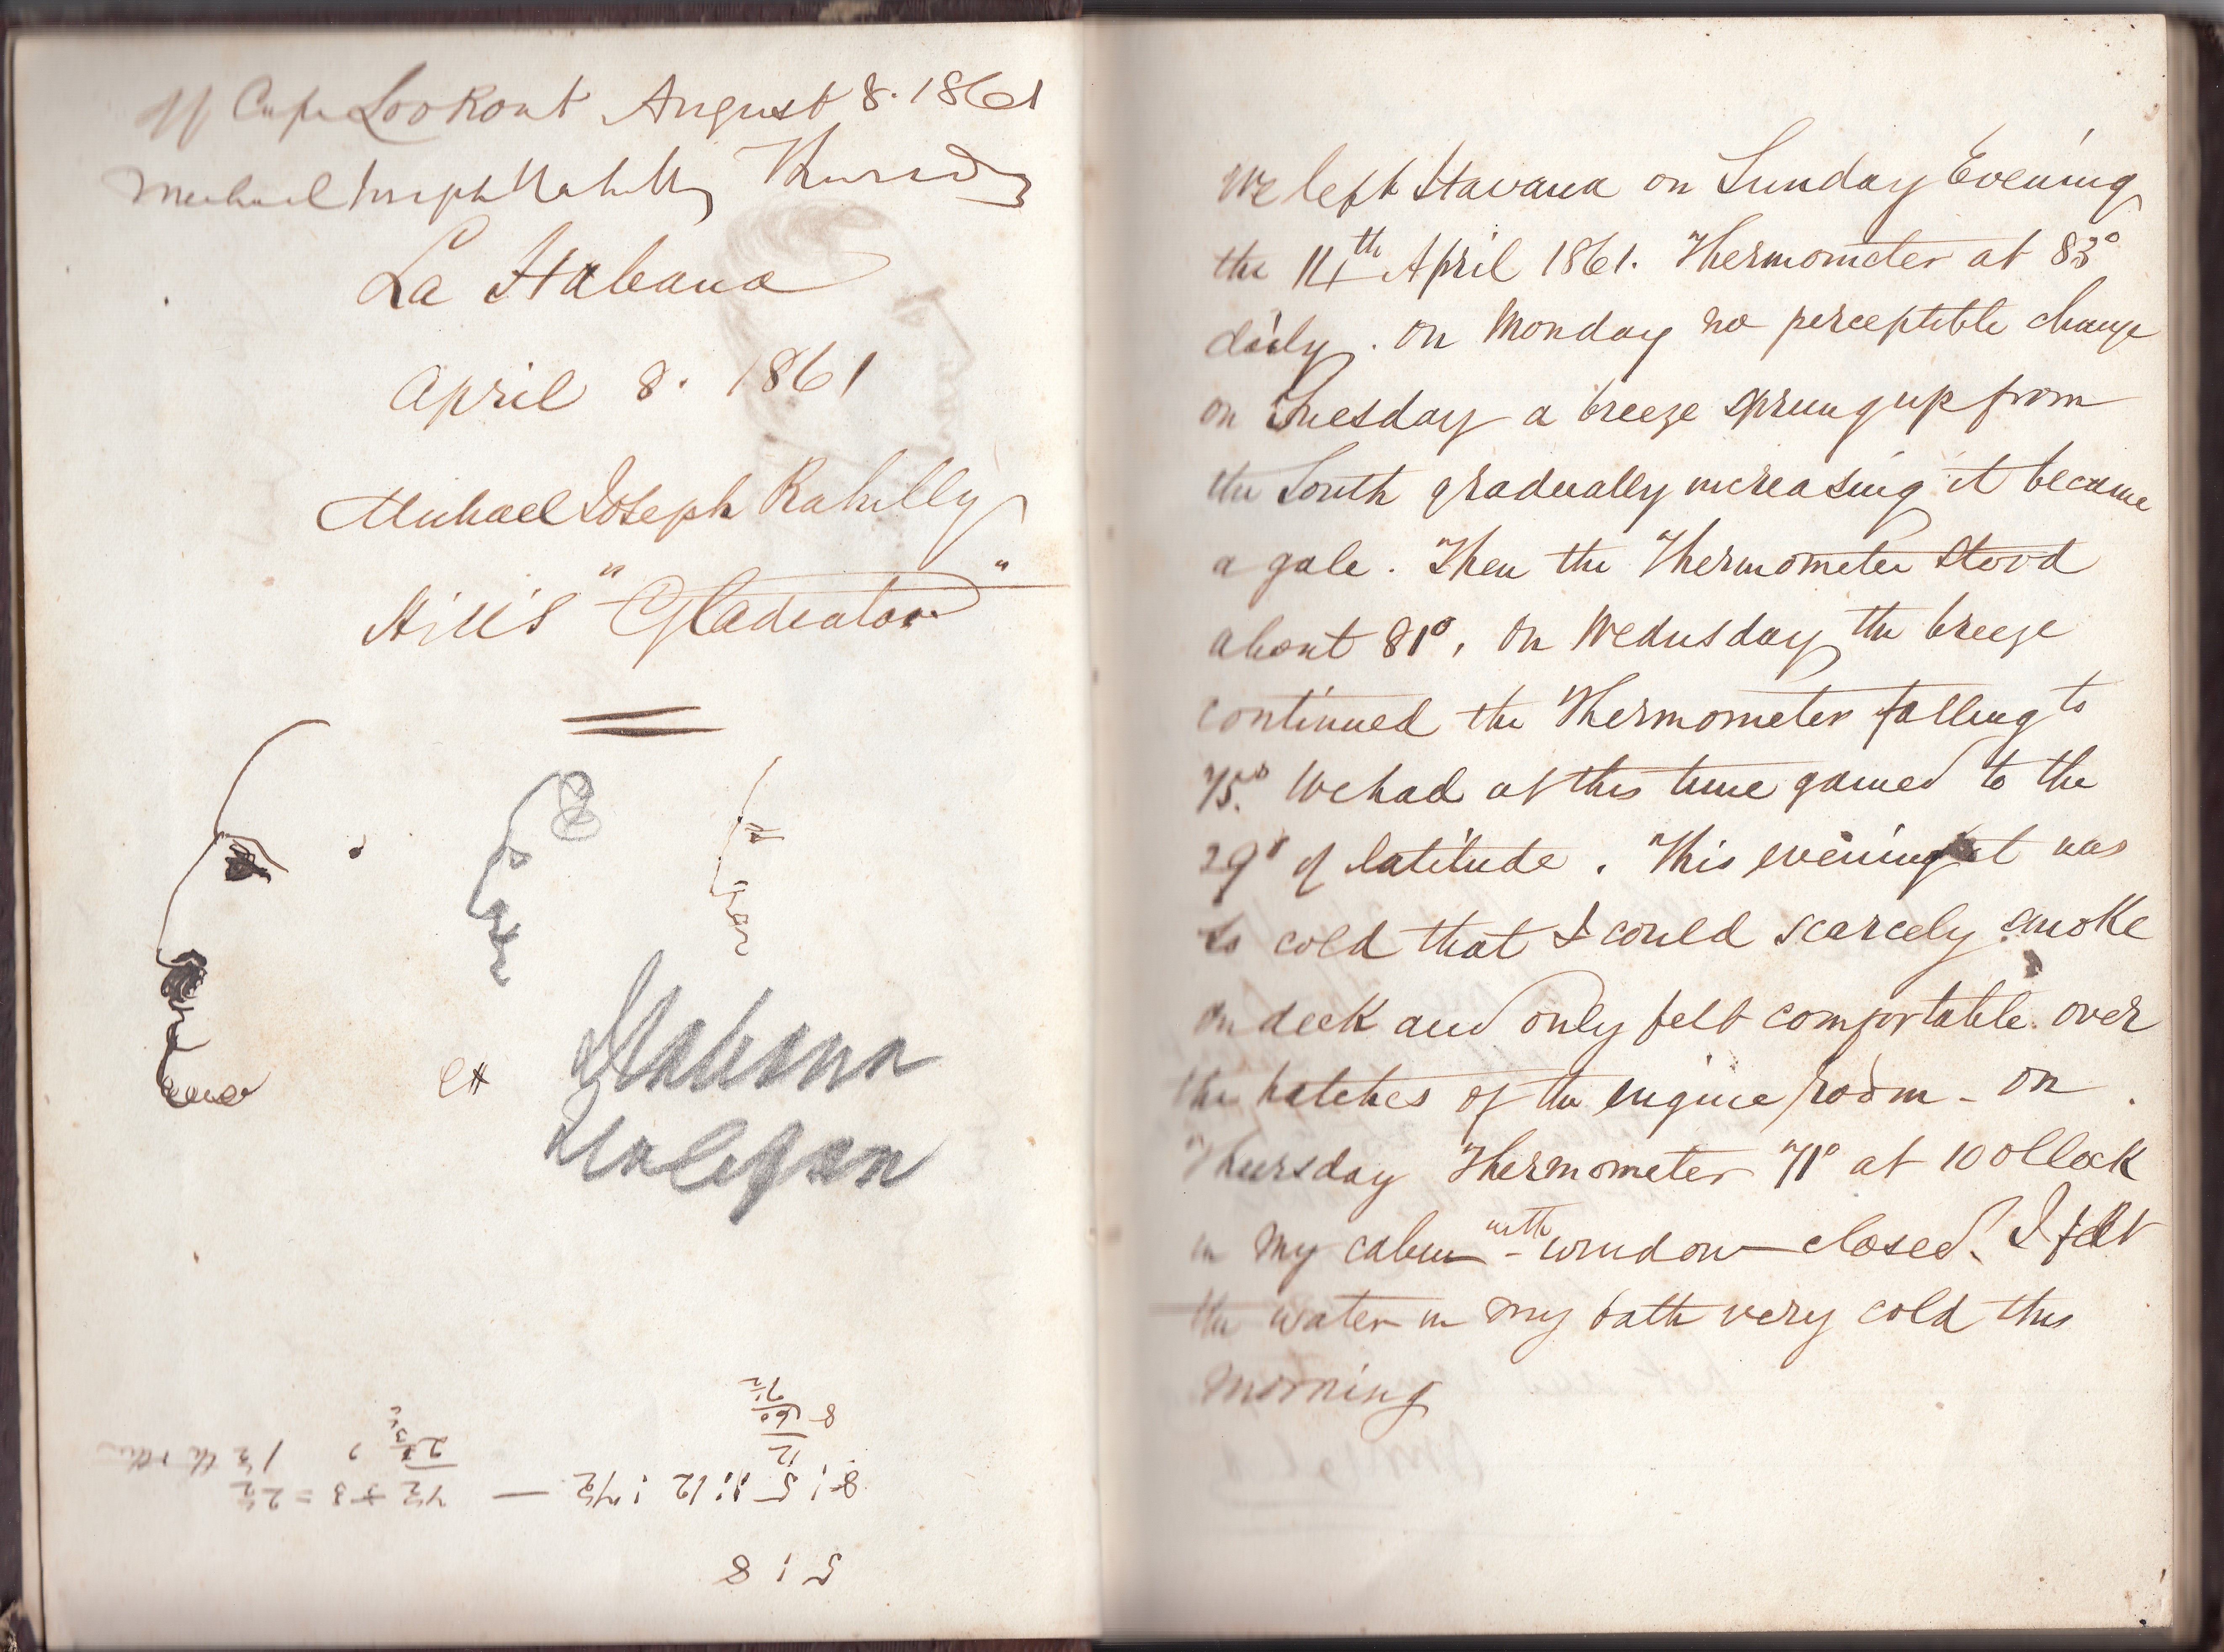 off Cape Lookout August 8. 1861
Michael Joseph Rahilly Thursday
La Habana
April 8. 1861
Michael Joseph Rahilly
H.M.S "Gladiator"
Habana
5 : 8
8 : 5 :: 12 : 7½ —
12
8 60
7½
We left Havana on Sunday Evening
the 14th April 1861. Thermometer at 83°
daily. On Monday no perceptible change
on Tuesday a breeze sprung up from
the South gradually increasing it became
a gale. Then the Thermometer stood
about 81°, On Wednesday the breeze
continued the Thermometer falling to
75°. We had at this time gained to the
29° of latitude. This evening it was
so cold that I could scarcely smoke
on deck and only felt comfortable over
the hatches of the engine room - on
Thursday Thermometer 71° at 10 oClock
in my cabin with window closed. I felt
the water in my bath very cold this
morning